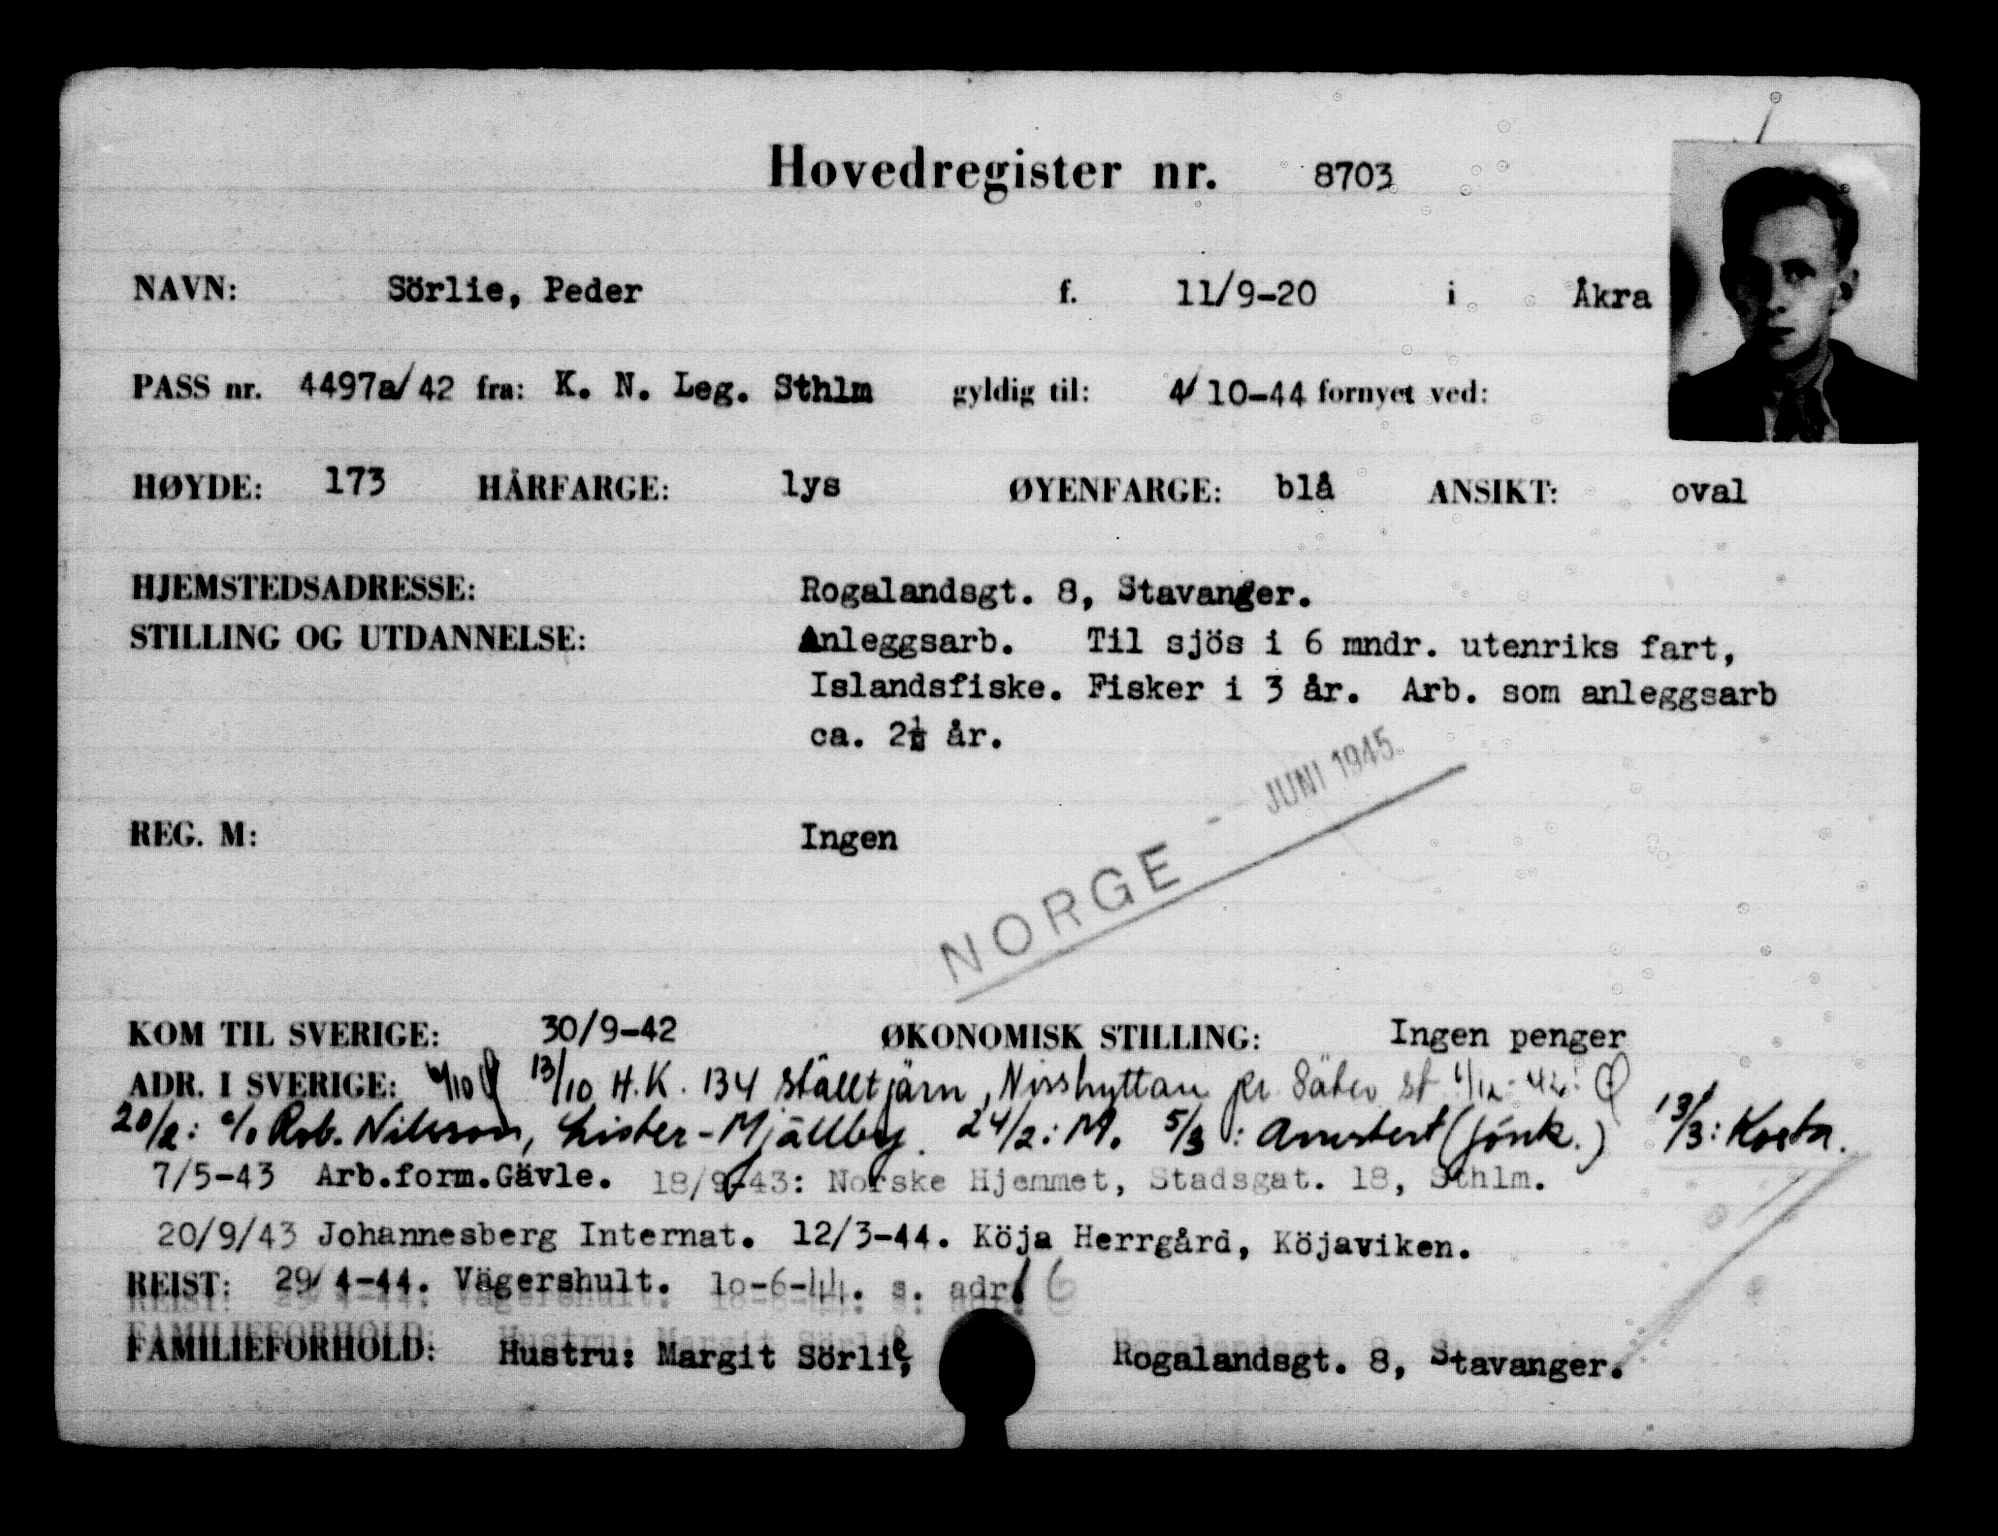 Hovedregister nr. 8703
NAVN: Sörlie, Peder f. 11/9-20 i Åkra
PASS nr. 4497a/42 fra: K. N. Leg. Sthlm gyldig til: 4/10-44 fornyet ved:
HØYDE: 173 HÅRFARGE: lys ØYENFARGE: blå ANSIKT: oval
HJEMSTEDSADRESSE: Rogalandsgt. 8, Stavanger.
STILLING OG UTDANNELSE: Anleggsarb. Til sjös i 6 mndr. utenriks fart,
Islandsfiske. Fisker i 3 år. Arb. som anleggsarb
ca. 2½ år.
NORGE - JUNI 1945.
REG. M: Ingen
KOM TIL SVERIGE: 30/9-42 ØKONOMISK STILLING: Ingen penger
ADR. I SVERIGE: 13/10 H.K. 134 Ställtjärn, Nisshyttan pr Säter st 1/12-42: Ö
20/2: c/o Rob. Nilsson, Lister-Mjällby. 24/2: M. 5/3: (Jönk.) 13/3: Kosta.
7/5-43 Arb.form.Gävle. 18/9-43: Norske Hjemmet, Stadsgat. 18, Sthlm.
20/9/43 Johannesberg Internat. 12/3-44. Köja Herrgård, Köjaviken.
REIST: 29/4-44. Vägershult. 10-6-44. s. adr. 6
FAMILIEFORHOLD: Hustru: Margit Sörlie, Rogalandsgt. 8, Stavanger.